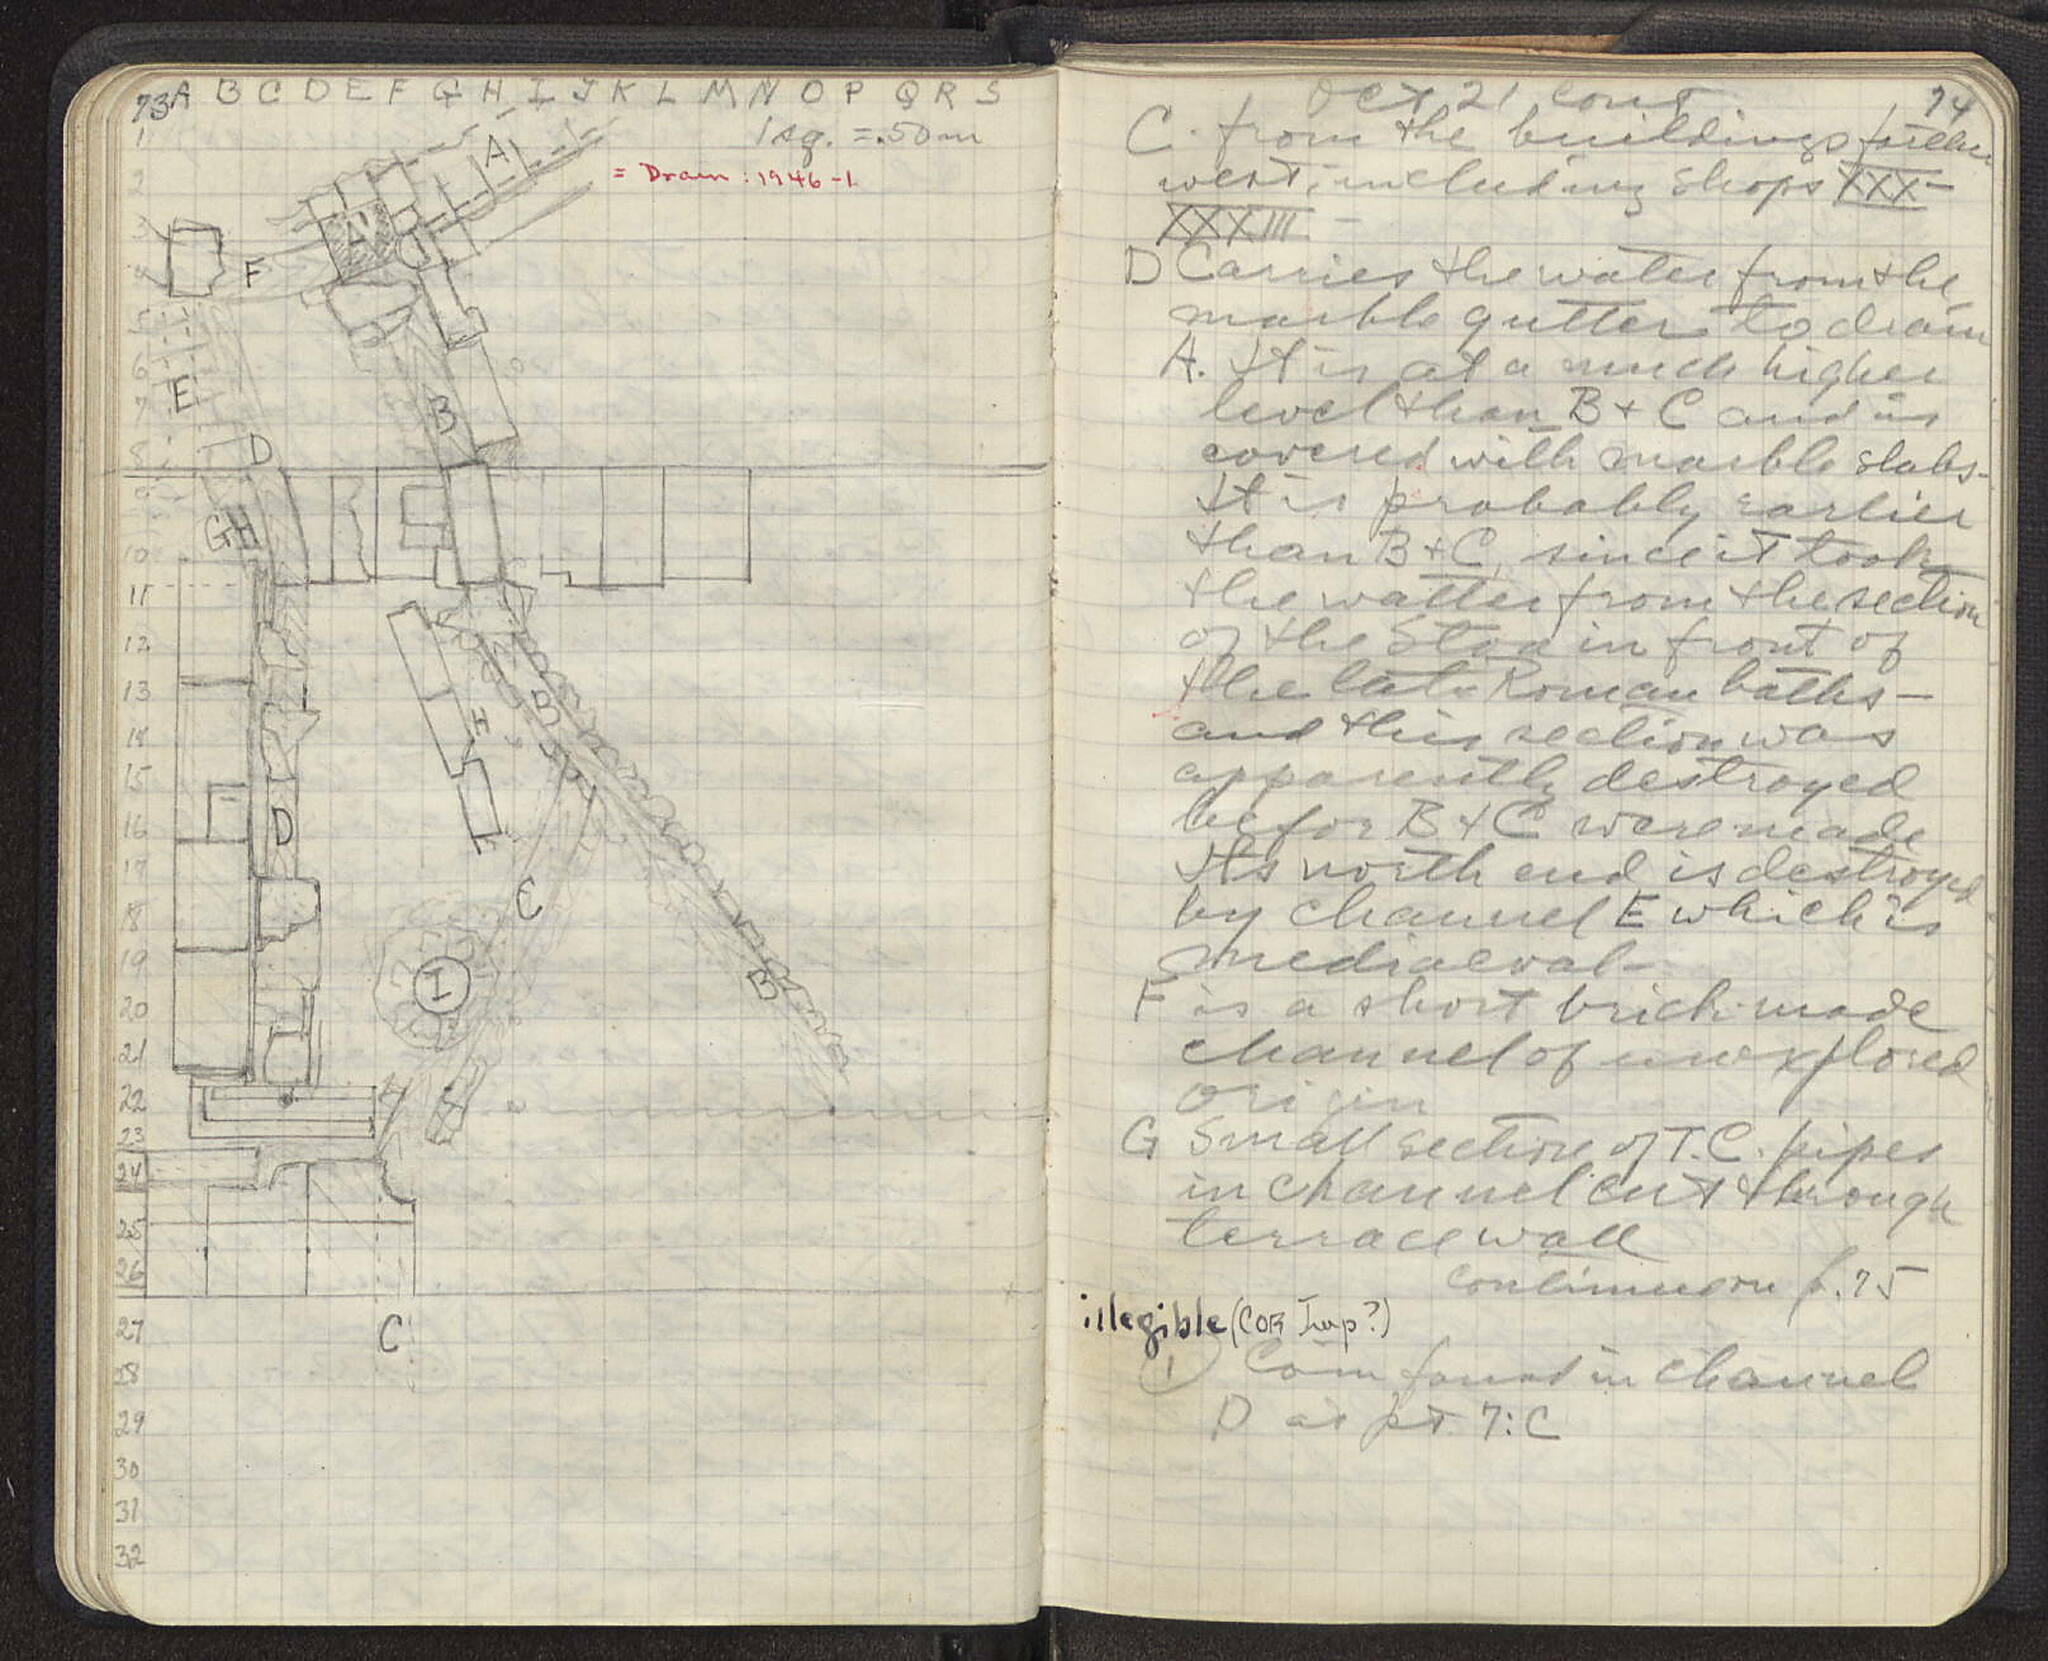 73 A B C D E F G H I J K L M N O P Q R S
1 sq. = .50 m
= Drain: 1946-1
1
2
3
4
5
6
7
8
9
10
11
12
13
14
15
16
17
18
19
20
21
22
23
24
25
26
27
28
29
30
31
32
A
A
F
E
B
D
G H
B
H
D
C
I
B
H
C
Oct 21 cont. 74
C. from the buildings further
west, including Shops XXX-
XXXIII -
D Carries the water from the
marble gutter to drain
A. It is at a much higher
level than B + C and is
covered with marble slabs-
It is probably earlier
than B + C, since it took
the watter from the section
of the Stoa in front of
the late Roman baths -
and this section was
apparently destroyed
befor B + C were made
Its north end is destroyed
by channel E which is
mediaeval-
F is a short brick-made
channel of unexplored
origin
G Small section of T.C. pipes
in channel cut through
terrace wall
continued on p. 75
illegible (COR Imp?)
1 Coin found in channel
D at pt. 7:C